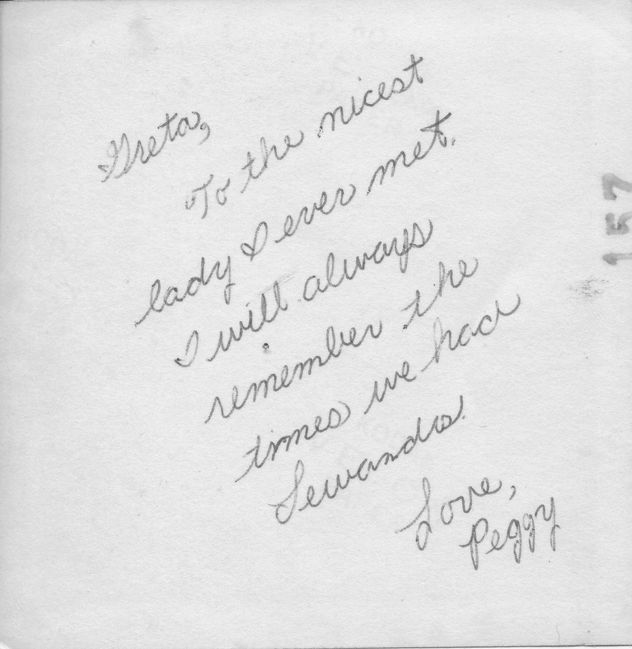 Greta,
To the nicest
lady I ever met.
I will always
remember the
times we had
Love,
Peggy
157